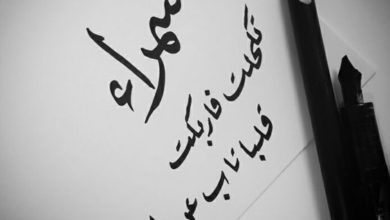 سمراء
تكحلت فاربكت
قلبا تاب عن